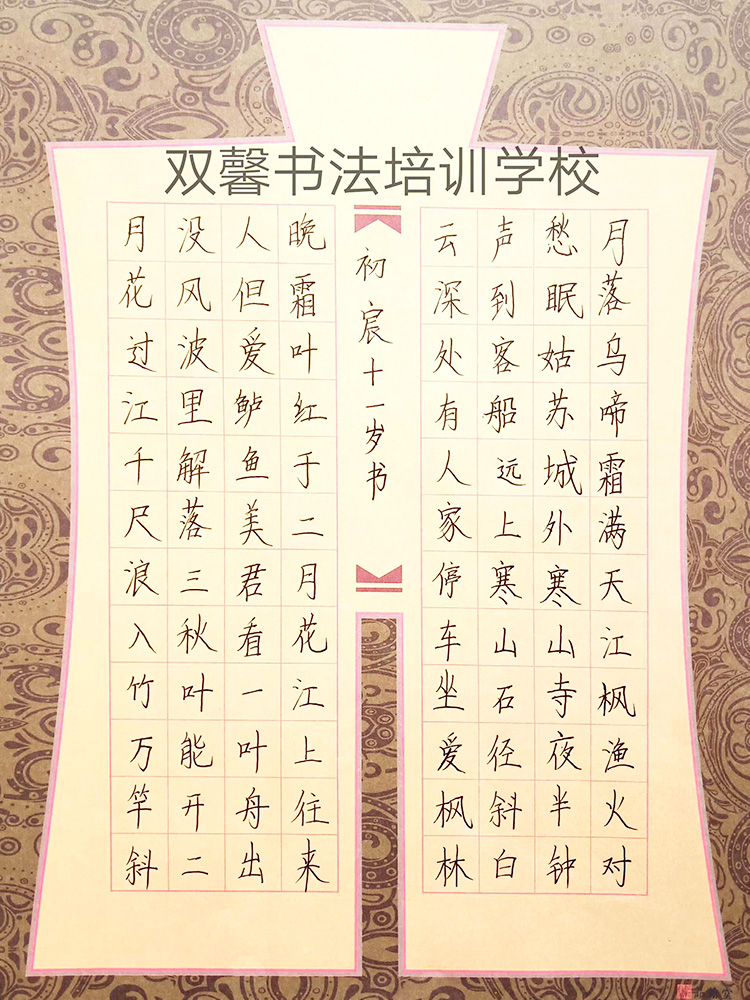 双馨书法培训学校
月落乌啼霜满天江枫渔火对
愁眠姑苏城外寒山寺夜半钟
声到客船远上寒山石径斜白
云深处有人家停车坐爱枫林
初宸十一岁书
晚霜叶红于二月花江上往来
人但爱鲈鱼美君看一叶舟出
没风波里解落三秋叶能开二
月花过江千尺浪入竹万竿斜